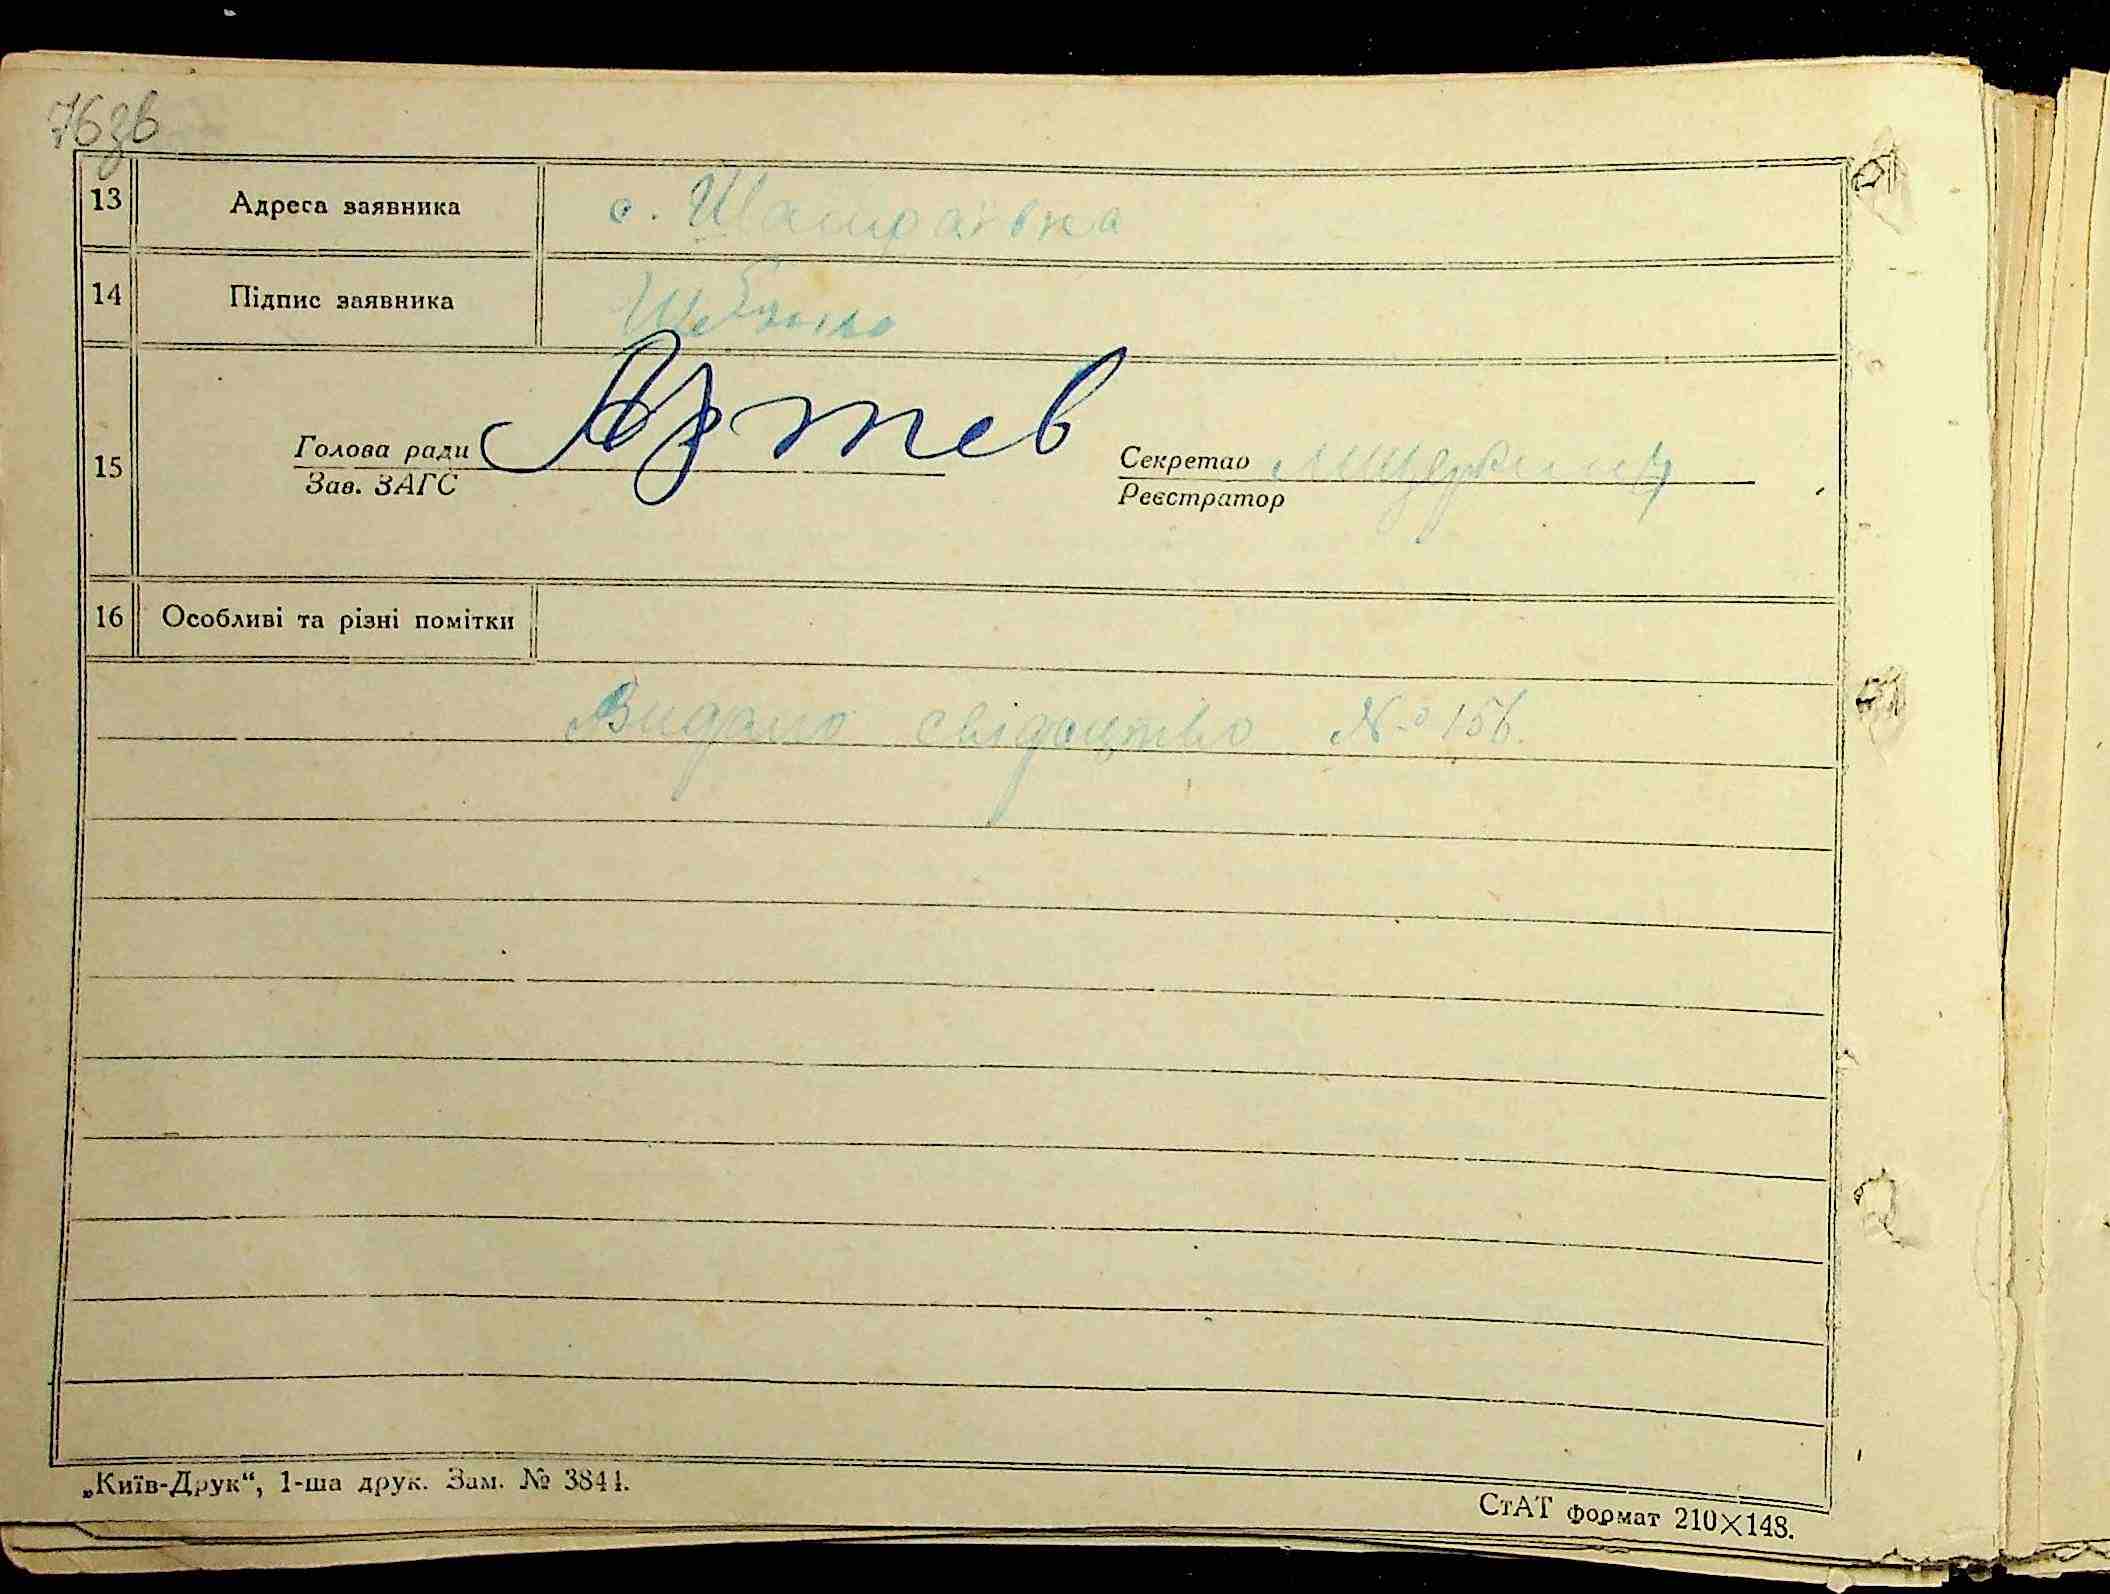 76зв
13 Адреса заявника с. Шамраївка
14 Підпис заявника
15 Голова ради Секретар
Зав. ЗАГС Реєстратор
16 Особливі та різні помітки
Видано свідоцтво № 156.
„Київ-Друк“, 1-ша друк. Зам. № 3844.
СтАТ формат 210×148.